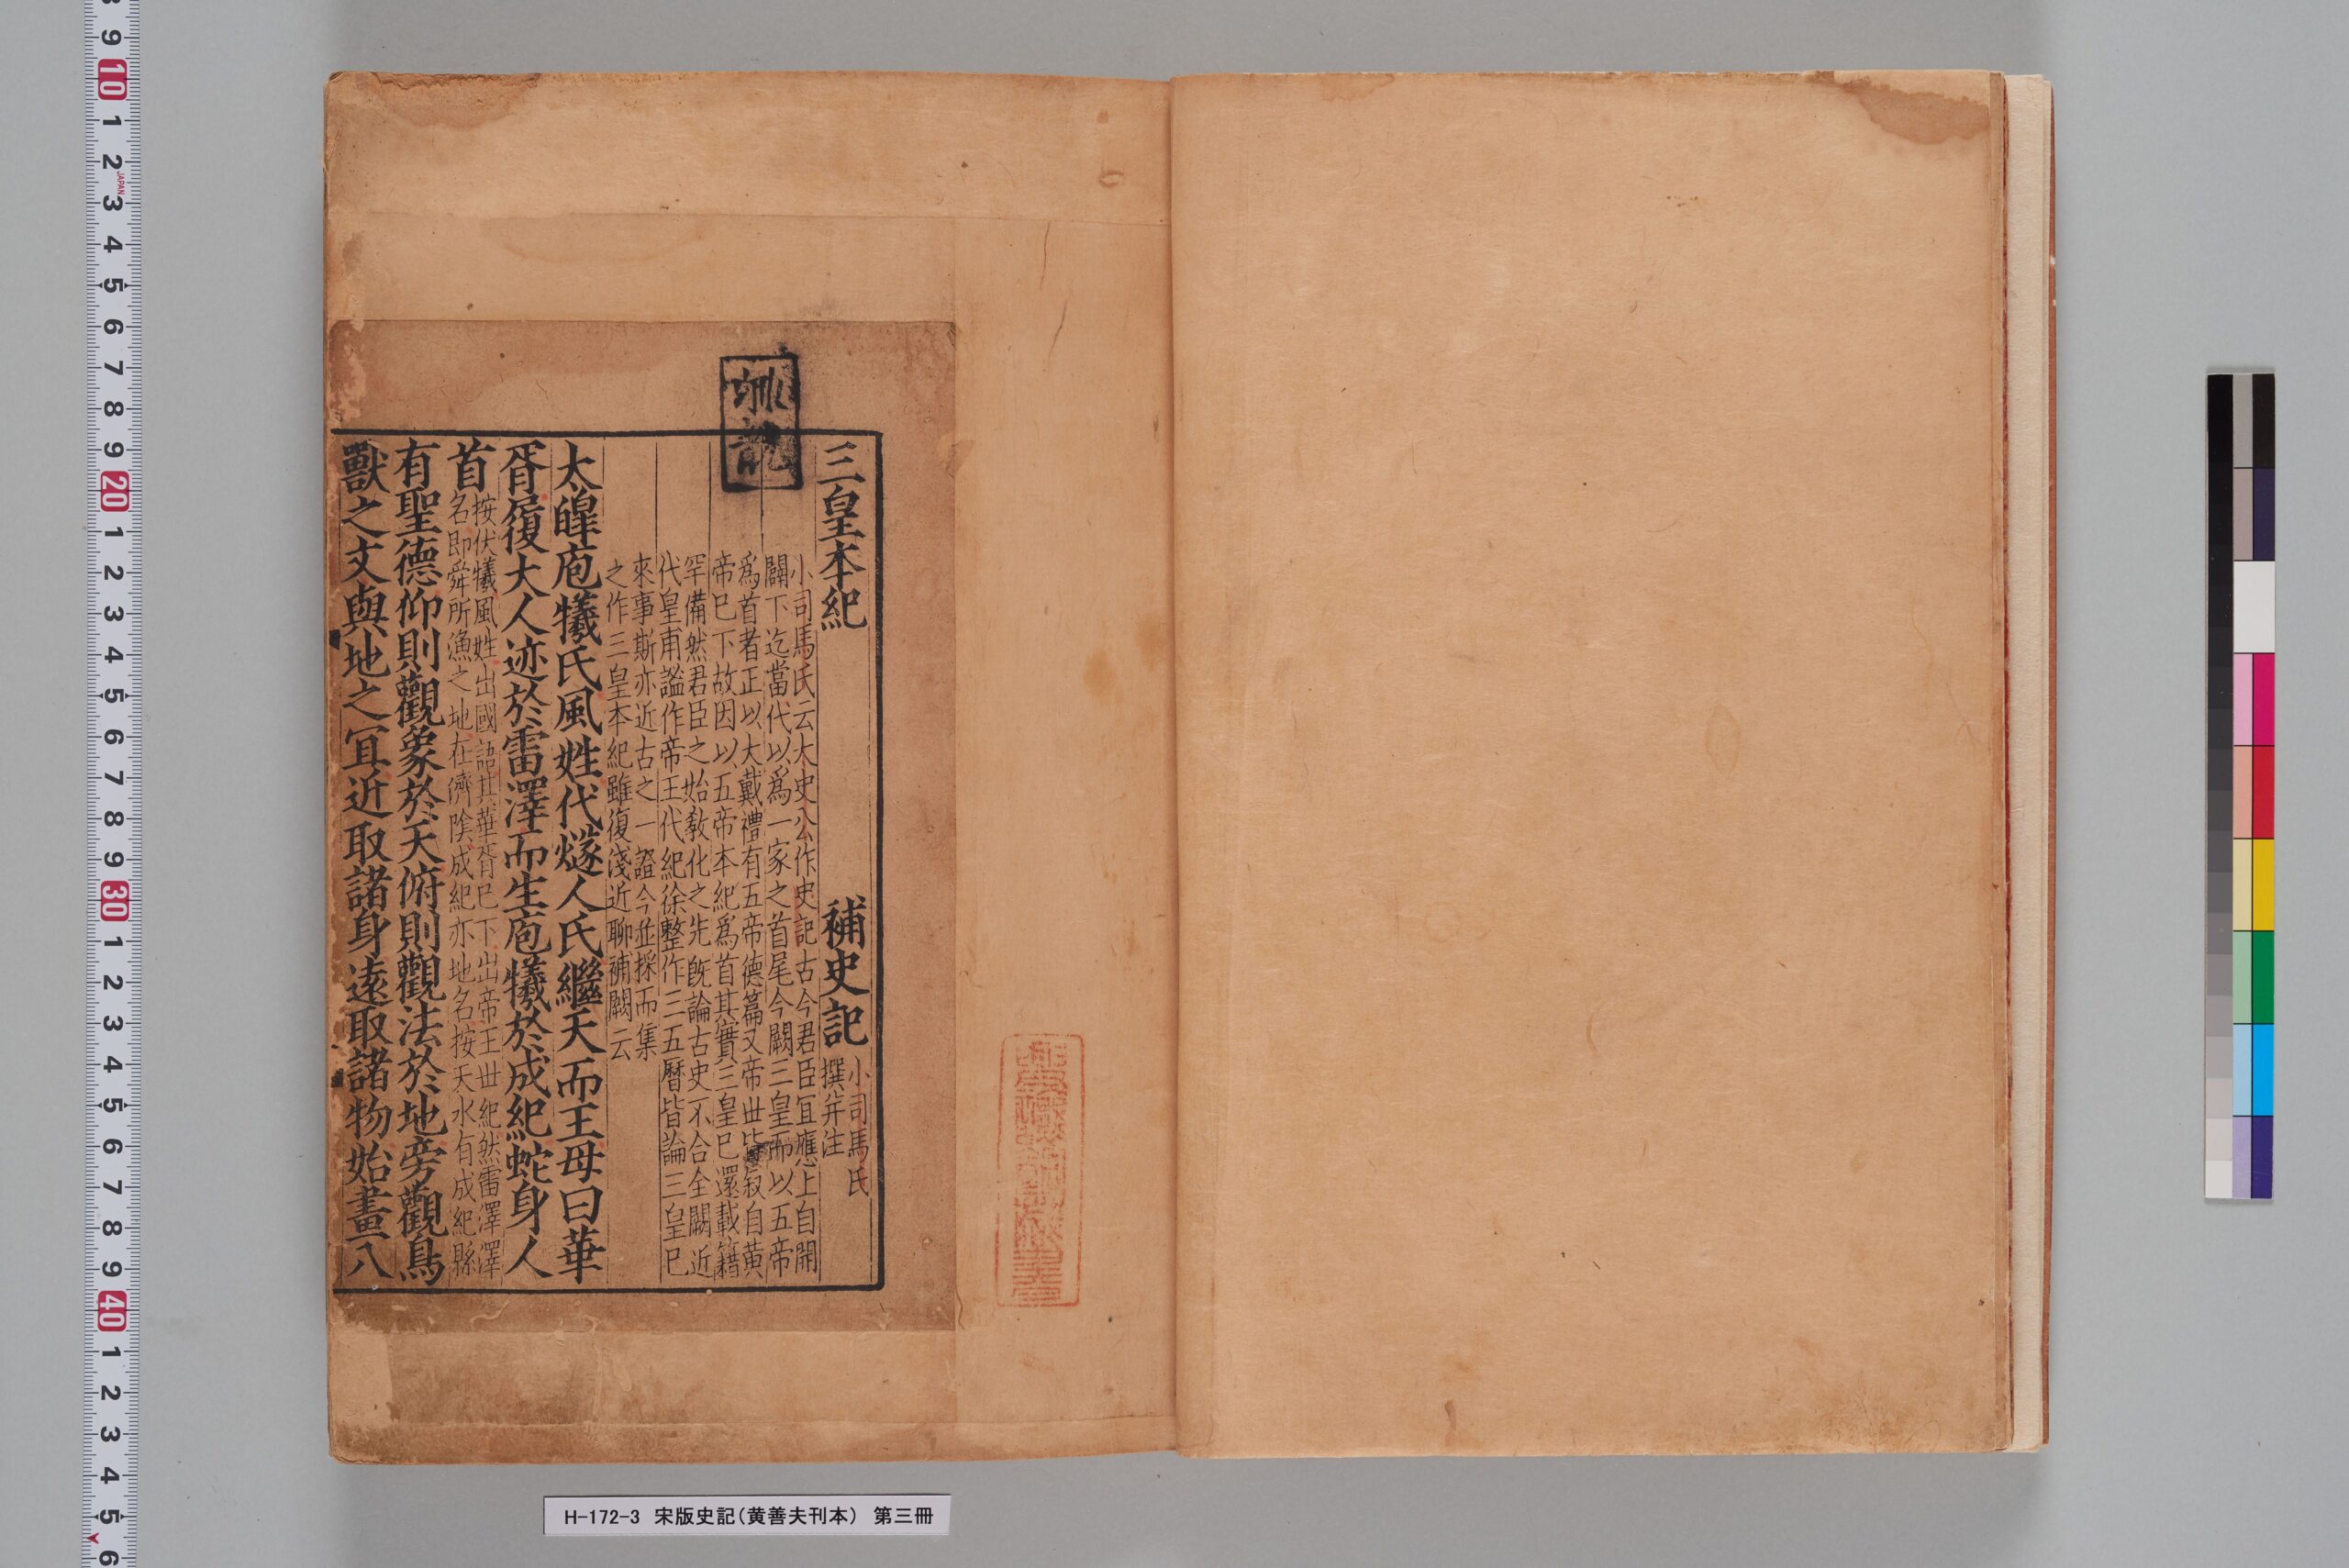 三皇本紀 補史記 小司馬氏
撰并注
小司馬氏云太史公作史記古今君臣冝應上自開
闢下迄當代以爲一家之首尾今闕三皇而以五帝
爲首者正以大戴禮有五帝德篇又帝丗皆叙自黄
帝已下故因以五帝本紀爲首其實三皇已還載籍
罕備然君臣之始教化之先旣論古史不合全闕近
代皇甫謐作帝王代紀徐整作三五曆皆論三皇已
來事斯亦近古之一證今並採而集
之作三皇本紀雖復淺近聊補闕云
太皥庖犧氏風姓代燧人氏繼天而王母曰華
胥履大人迹於雷澤而生庖犧於成紀蛇身人
首
按伏犧風姓出國語其華胥已下出帝王丗紀然雷澤澤
名即舜所漁之地在濟隂成紀亦地名按天水有成紀縣
有聖德仰則觀象於天俯則觀法於地旁觀鳥
獸之文與地之冝近取諸身遠取諸物始畫八
H-172-3 宋版史記（黄善夫刊本） 第三冊